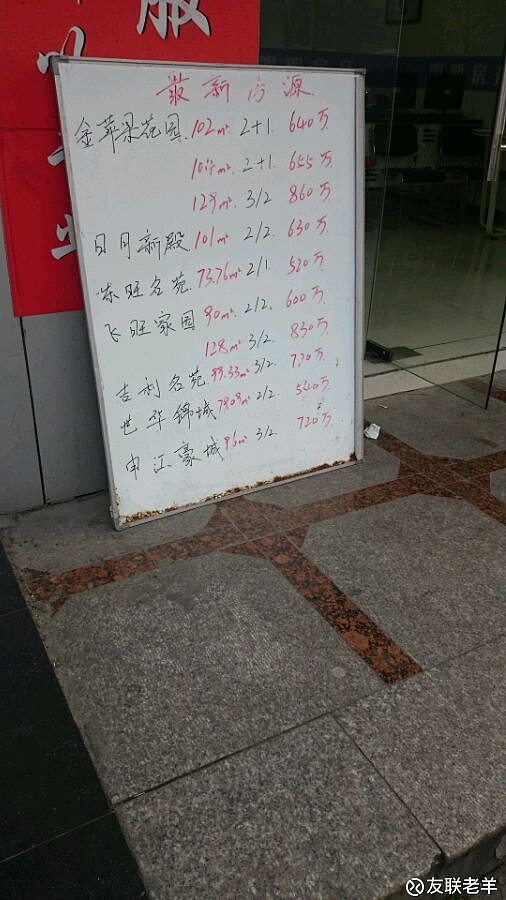 服
最新房源
金苹果花园 102m² 2+1 640万
104m² 2+1 655万
129m² 3/2 860万
日月新殿 101m² 2/2 630万
东旺名苑 73.76m² 2/1 520万
飞旺家园 90m² 2/2 600万
128m² 3/2 830万
吉利名苑 99.33m² 3/2 720万
世华锦城 78.08m² 2/2 540万
申江豪城 96m² 3/2 720万
友联老羊